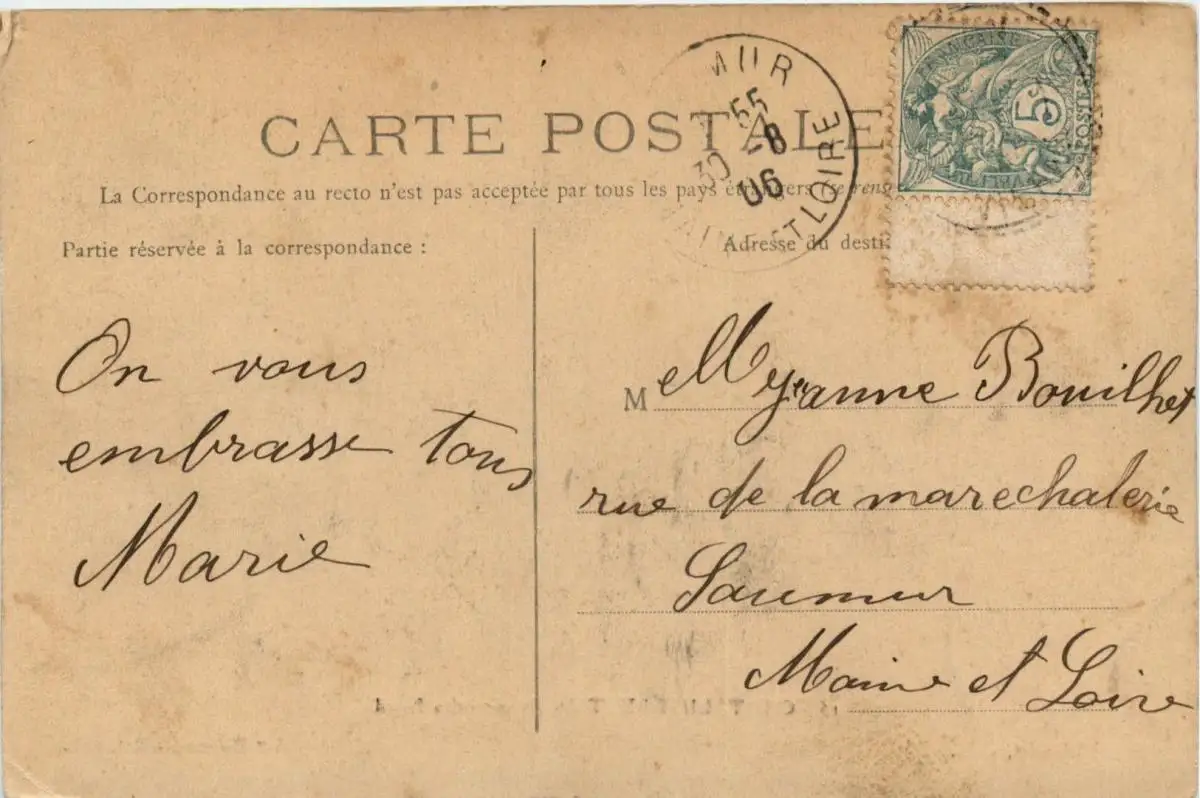 CARTE POSTALE
La Correspondance au recto n'est pas acceptée par tous les pays étrangers (se rens
Partie réservée à la correspondance :
Adresse du desti
MUR
55
30 -8
06
ET LOIRE
FRANÇAISE
5
POSTES
On vous
embrasse tous
Marie
M Jeanne Bouilhet
rue de la marechalerie
Saumur
Maine et Loire